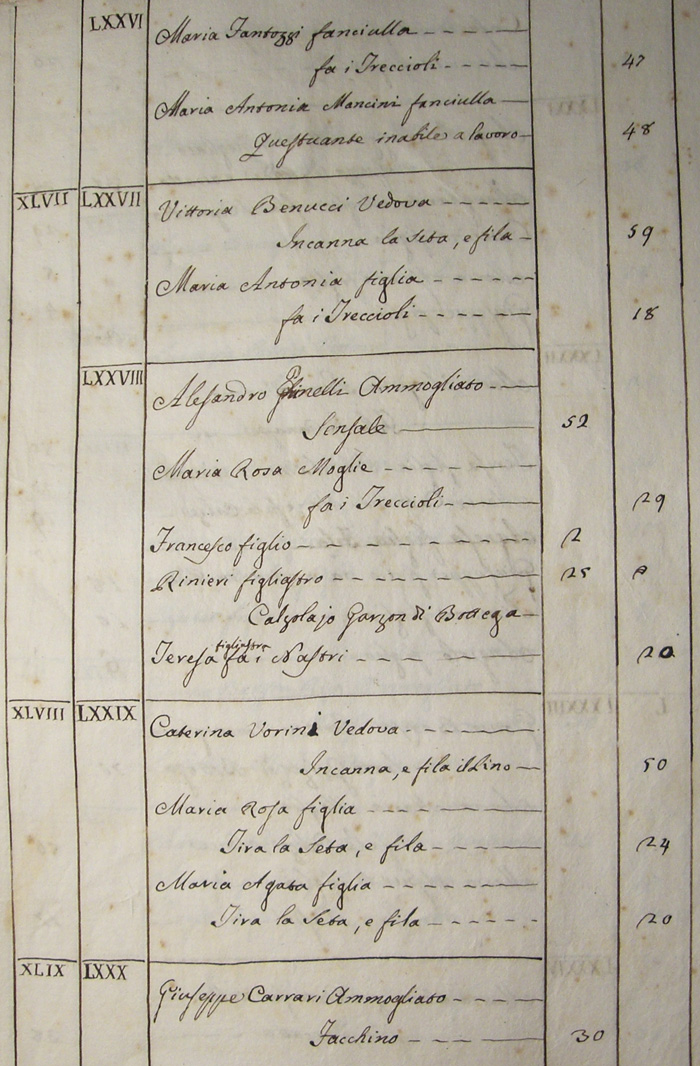 LXXVI Maria Fantozzi fanciulla
fa i Treccioli 47
Maria Antonia Mancini fanciulla
Questuante inabile a lavoro 48
XLVII LXXVII Vittoria Benucci Vedova
Incanna la Seta, e fila 59
Maria Antonia figlia
fa i Treccioli 18
LXXVIII Alesandro Ammogliato
Sensale 52
Maria Rosa Moglie
fa i Treccioli 29
Francesco figlio 2
Rinieri figliastro 25
Calzolajo Garzon di Bottega
figliastra
Teresa fa i Nastri 20
XLVIII LXXIX Caterina Vorini Vedova
Incanna, e fila il Lino 50
Maria Rosa figlia
Tira la Seta, e fila 24
Maria Agata figlia
Tira la Seta, e fila 20
XLIX LXXX Giuseppe Carrari Ammogliato
Facchino 30